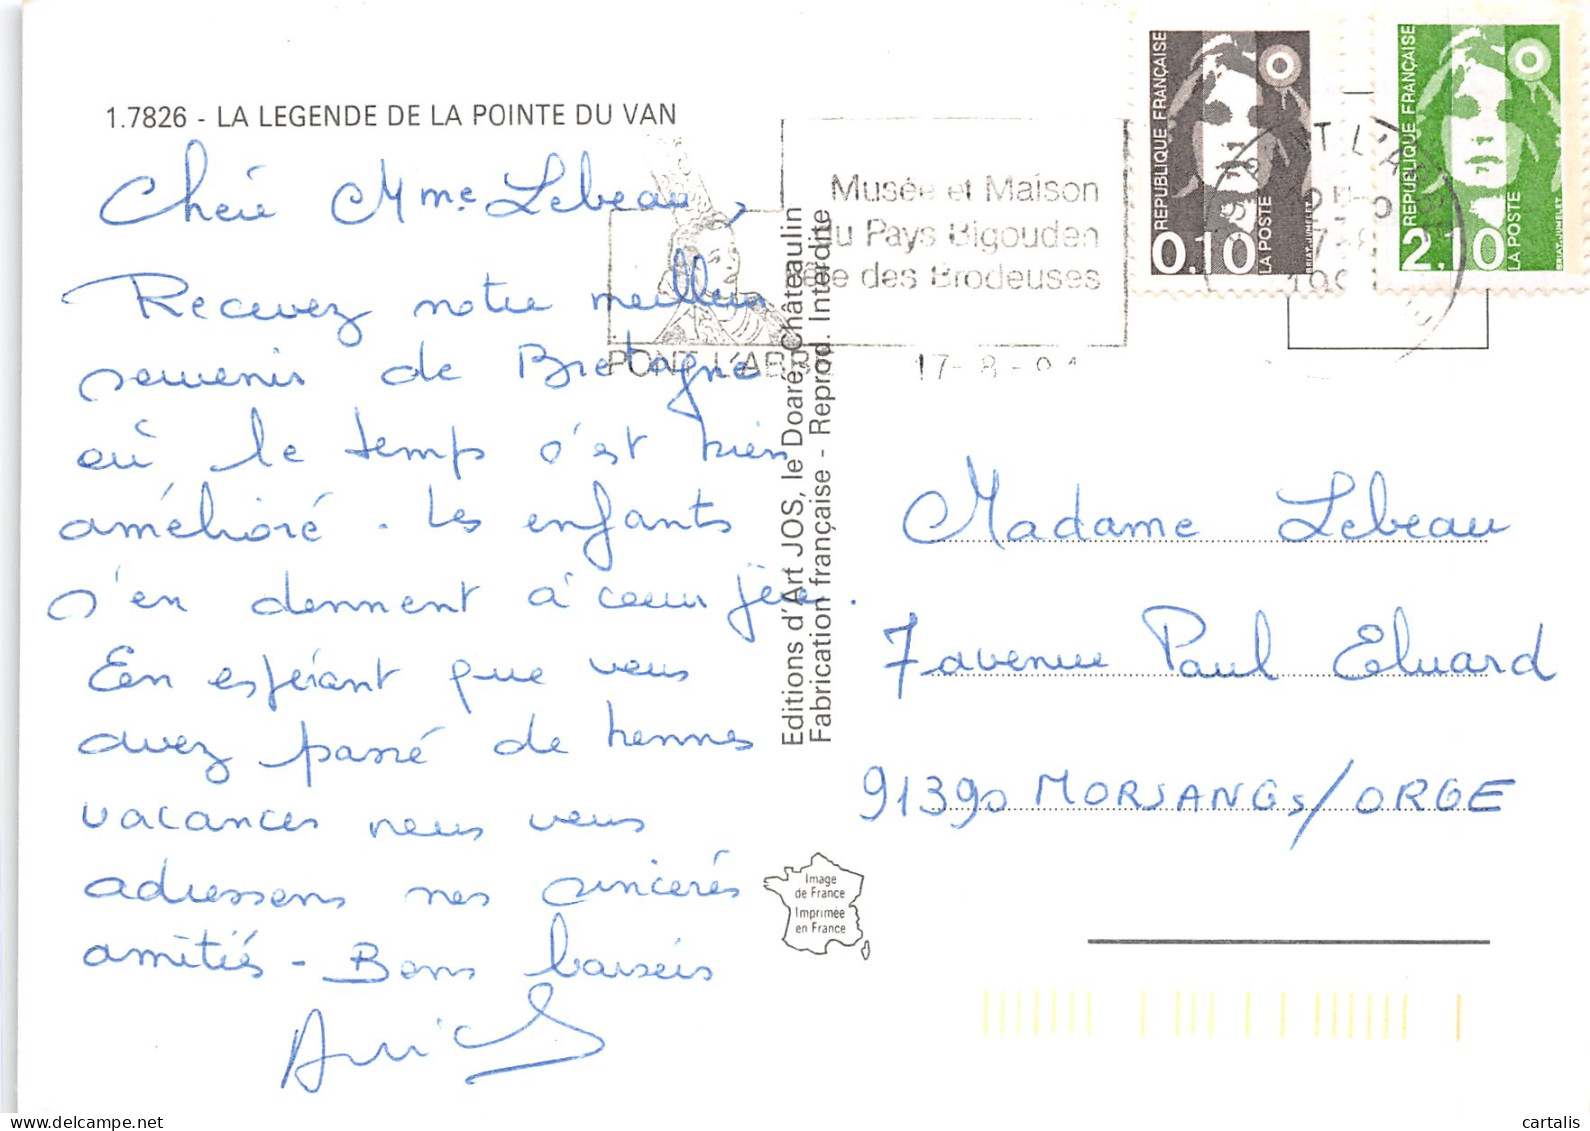 1.7826 - LA LEGENDE DE LA POINTE DU VAN
Chère Mme Lebeau,
Recevez notre meilleur
souvenir de Bretagne
où le temps s'est bien
amélioré. Les enfants
s'en donnent à coeur joie.
En espérant que vous
avez passé de bonnes
vacances nous vous
adressons nos sincères
amitiés - Bons baisers
Annick
Editions d'Art JOS, le Doaré, Châteaulin
Fabrication française - Reprod. Interdite
Image
de France
Imprimée
en France
Musée et Maison
du Pays Bigouden
Fête des Brodeuses
PONT L'ABBÉ
17-8-94
REPUBLIQUE FRANÇAISE
0,10
LA POSTE
BRIAT-JUMELET
REPUBLIQUE FRANÇAISE
2,10
LA POSTE
BRIAT-JUMELET
Madame Lebeau
7 avenue Paul Eluard
91390 MORSANG s/ORGE
delcampe.net
cartalis